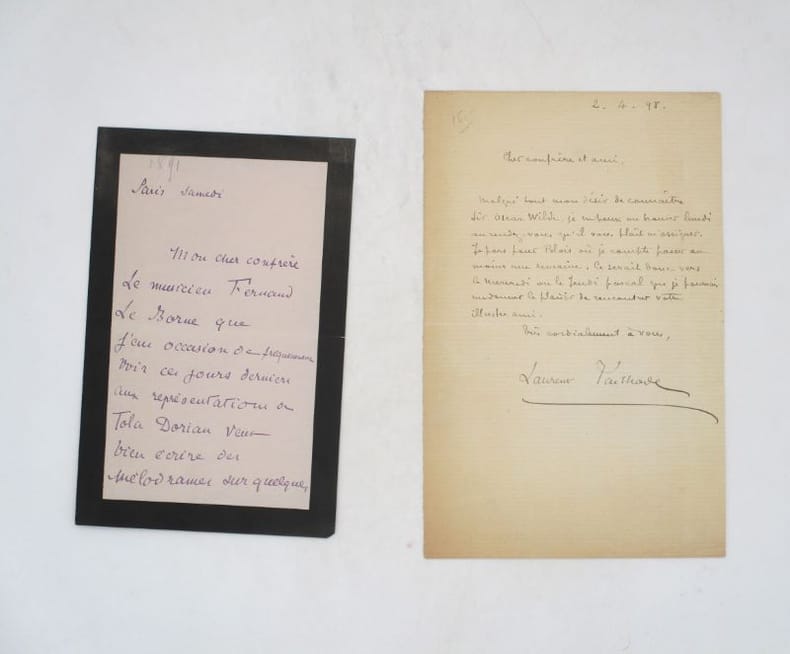 1891
Paris samedi
Mon cher confrère
Le musicien Fernand
Le Borne que
j'eus occasion de fréquemment
voir ces jours derniers
aux représentations de
Tola Dorian veut
bien écrire des
mélodrames sur quelques
2. 4. 98.
Cher confrère et ami,
Malgré tout mon désir de connaître
Sir Oscar Wilde, je ne peux me trouver lundi
au rendez-vous qu'il vous plaît m'assigner.
Je pars pour Blois où je compte passer au
moins une semaine. Ce serait donc vers
le Mercredi ou le Jeudi pascal que je pourrais
le plaisir de rencontrer votre
illustre ami.
Très cordialement à vous,
Laurent Tailhade